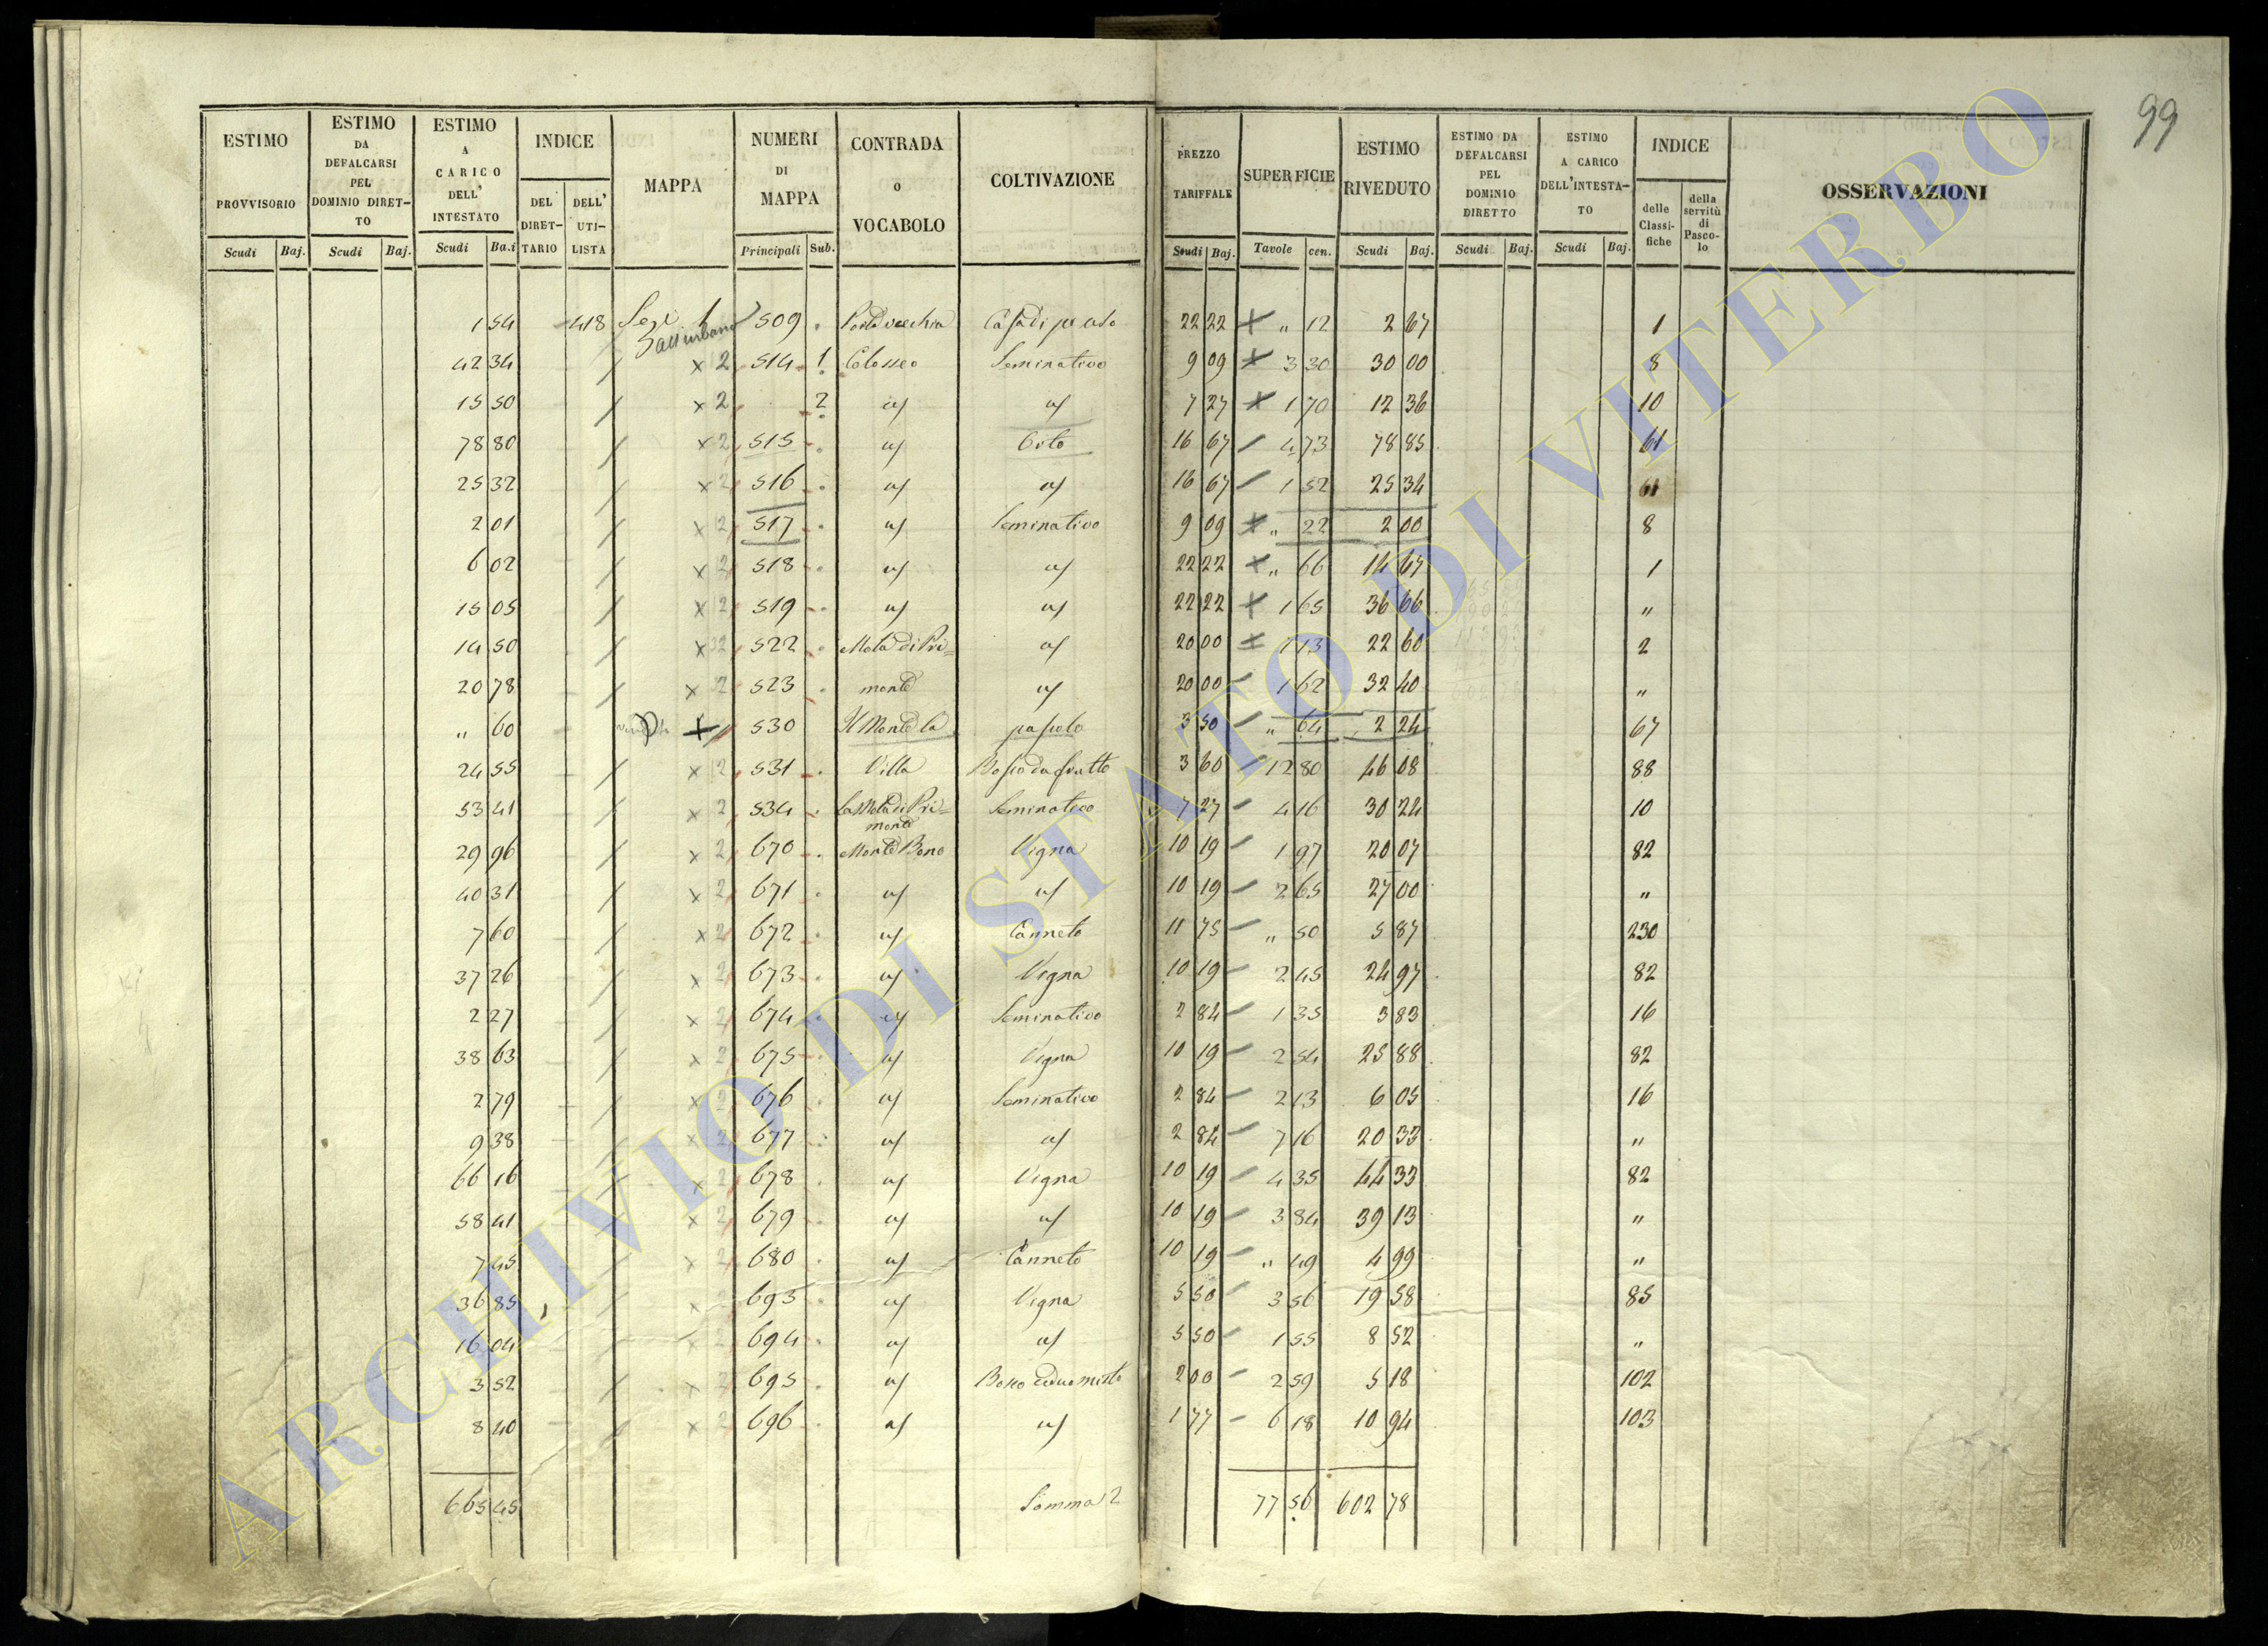 99
ESTIMO PROVVISORIO | ESTIMO DA DEFALCARSI PEL DOMINIO DIRET-TO | ESTIMO A CARICO DELL' INTESTATO | INDICE | MAPPA | NUMERI DI MAPPA | CONTRADA O VOCABOLO | COLTIVAZIONE | PREZZO TARIFFALE | SUPERFICIE | ESTIMO RIVEDUTO | ESTIMO DA DEFALCARSI PEL DOMINIO DIRETTO | ESTIMO A CARICO DELL'INTESTA-TO | INDICE | OSSERVAZIONI
DEL DIRET-TARIO | DELL' UTI-LISTA | delle Classi-fiche | della servitù di Pasco-lo
Scudi | Baj. | Scudi | Baj. | Scudi | Ba.i | Principali | Sub. | Scudi | Baj. | Tavole | cen. | Scudi | Baj. | Scudi | Baj. | Scudi | Baj.
1 54 | 418 | Sez. 1 | 509 | Porta vecchia | Casa di pr uso | 22 22 | " 12 | 2 67 | 1
all'urbano
42 34 | x 2 | 514 | 1 | Colosseo | Seminativo | 9 09 | 3 30 | 30 00 | 8
15 50 | x 2 | 2 | " | " | 7 27 | 1 70 | 12 36 | 10
78 80 | x 2 | 515 | " | Orto | 16 67 | 4 73 | 78 85 | 61
25 32 | x 2 | 516 | " | " | 16 67 | 1 52 | 25 34 | 61
2 01 | x 2 | 517 | " | Seminativo | 9 09 | " 22 | 2 00 | 8
6 02 | x 2 | 518 | " | " | 22 22 | " 66 | 14 67 | 1
15 05 | x 2 | 519 | " | " | 22 22 | 1 65 | 36 66 | "
14 50 | x 2 | 522 | Mola di Pri= | " | 20 00 | 1 13 | 22 60 | 2
20 78 | x 2 | 523 | monte | " | 20 00 | 1 62 | 32 40 | "
" 60 | + | 530 | Il Monte la | pascolo | 3 50 | " 64 | 2 24 | 67
24 55 | x 2 | 531 | Villa | Bosco da frutto | 3 60 | 12 80 | 46 08 | 88
53 41 | x 2 | 534 | La Mola di Pri= | Seminativo | 7 27 | 4 16 | 30 24 | 10
monte
29 96 | x 2 | 670 | Monte Bono | Vigna | 10 19 | 1 97 | 20 07 | 82
40 31 | x 2 | 671 | " | " | 10 19 | 2 65 | 27 00 | "
7 60 | x 2 | 672 | " | Canneto | 11 75 | " 50 | 5 87 | 230
37 26 | x 2 | 673 | " | Vigna | 10 19 | 2 45 | 24 97 | 82
2 27 | x 2 | 674 | " | Seminativo | 2 84 | 1 35 | 3 83 | 16
38 63 | x 2 | 675 | " | Vigna | 10 19 | 2 54 | 25 88 | 82
2 79 | x 2 | 676 | " | Seminativo | 2 84 | 2 13 | 6 05 | 16
9 38 | x 2 | 677 | " | " | 2 84 | 7 16 | 20 33 | "
66 16 | x 2 | 678 | " | Vigna | 10 19 | 4 35 | 44 33 | 82
58 41 | x 2 | 679 | " | " | 10 19 | 3 84 | 39 13 | "
7 45 | x 2 | 680 | " | Canneto | 10 19 | " 49 | 4 99 | "
36 85 | x | 693 | " | Vigna | 5 50 | 3 56 | 19 58 | 85
16 04 | 694 | " | " | 5 50 | 1 55 | 8 52 | "
3 52 | x 2 | 695 | " | Bosco ceduo misto | 2 00 | 2 59 | 5 18 | 102
8 40 | x 2 | 696 | " | " | 1 77 | 6 18 | 10 94 | 103
665 45 | Somma 2 | 77 56 | 602 78
ARCHIVIO DI STATO DI VITERBO